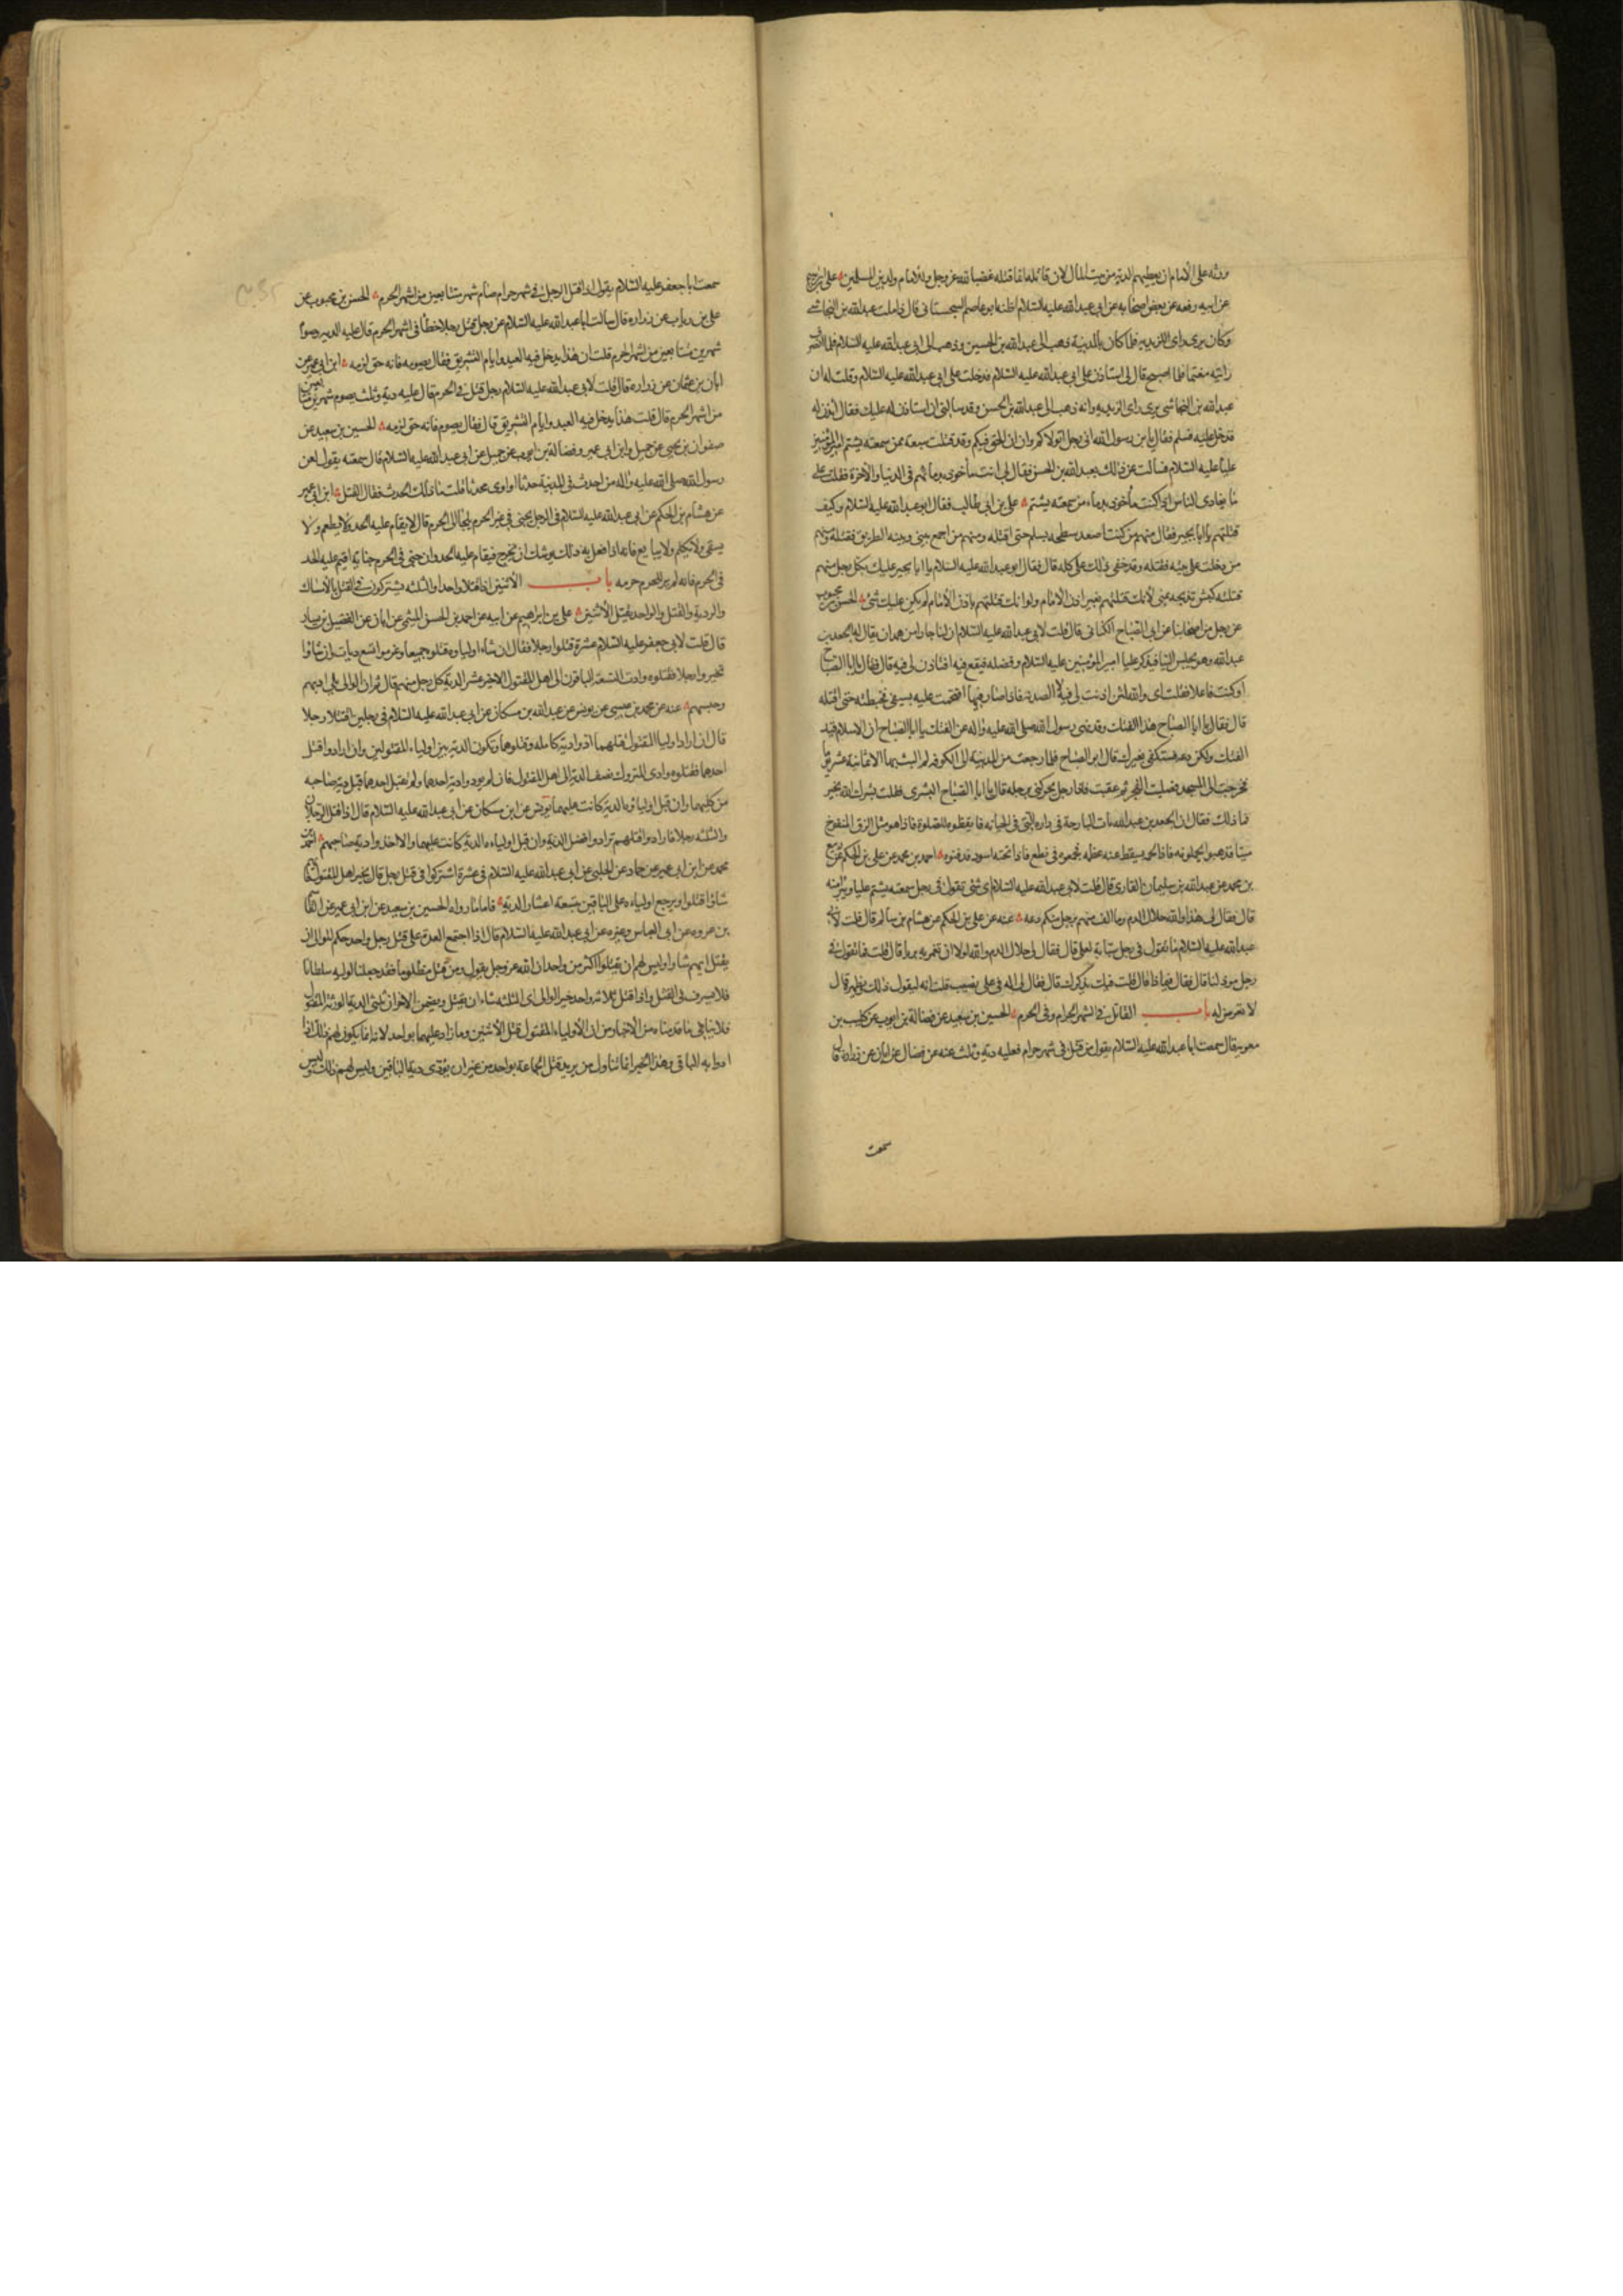 ورثته على الامام ان يعطيهم الدية من بيت المال لان قاتله انما قتله غضبا لله عز وجل وللامام ولدين المسلمين علي بن ابرهيم
عن ابيه رفعه عن بعض اصحابه عن ابي عبد الله عليه السلام اظنه ابو عاصم السجستاني قال زاملت عبد الله بن النجاشي
وكان يرى راى الزيدية فلما كان بالمدينة ذهب الى عبد الله بن الحسين وذهب الى ابي عبد الله عليه السلام فلما انصرف
رايته مغتما فلما اصبح قال لي استاذن على ابي عبد الله عليه السلام فدخلت على ابي عبد الله عليه السلام وقلت له ان
عبد الله بن النجاشي يرى راى الزيدية وانه ذهب الى عبد الله بن الحسن وقد سالني ان استاذن له عليك فقال ائذن له
فدخل عليه فسلم فقال يابن رسول الله اني رجل اتولاكم وان الحق فيكم وقد قتلت سبعة ممن سمعته يشتم امير المؤمنين
عليا عليه السلام فسالت عن ذلك عبد الله بن الحسن فقال لي انت ماخوذ بدمائهم في الدنيا والاخرة فقلت على
ما نعادي الناس اذا كنت ماخوذ بدماء من سمعته يشتم علي بن ابي طالب فقال ابو عبد الله عليه السلام وكيف
قتلتهم يا ابا بجير فقال منهم من كنت اصعد سطحه بسلم حتى اقتله ومنهم من اجمع بيني وبينه الطريق فقتلته ومنهم
من دخلت على بيته فقتلته وقد خفي ذلك على كله قال فقال ابو عبد الله عليه السلام يا ابا بجير عليك بكل رجل منهم
قتلته كبش تذبحه بمنى لانك قتلتهم بغير اذن الامام ولو انك قتلتهم باذن الامام لم يكن عليك شئ الحسن بن محبوب
عن رجل من اصحابنا عن ابي الصباح الكناني قال قلت لابي عبد الله عليه السلام ان لنا جارا من همدان يقال له الجعد بن
عبد الله وهو يجلس الينا فنذكر عليا امير المؤمنين عليه السلام وفضله فيقع فيه افتاذن لي فيه قال فقال يا ابا الصباح
او كنت فاعلا فقلت اى والله لئن اذنت لي فيه لارصدنه فاذا صار فيها اقتحمت عليه بسيفي فخبطته حتى اقتله
قال فقال يا ابا الصباح هذا الفتك وقد نهى رسول الله صلى الله عليه واله عن الفتك يا ابا الصباح ان الاسلام قيد
الفتك ولكن دعه فستكفى بغيرك قال ابو الصباح فلما رجعت من المدينة الى الكوفة لم البث بها الا ثمانية عشر يوما
فخرجت الى المسجد فصليت الفجر ثم عقبت فاذا رجل يحركني برجله قال يا ابا الصباح البشرى فقلت بشرك الله بخير
فما ذلك فقال ان الجعد بن عبد الله بات البارحة في داره التي في الجبانة فايقظوه للصلوة فاذا هو مثل الزق المنفوخ
ميتا فذهبوا يحملونه فاذا لحمه يسقط عنه عظمه فجمعوه في نطع فاذا تحته اسود فدفنوه احمد بن محمد عن علي بن الحكم عن ربيع
بن محمد عن عبد الله بن سليمان القاري قال قلت لابي عبد الله عليه السلام اى شئ تقول في رجل سمعته يشتم عليا ويبرأ منه
قال فقال لي هذا والله حلال الدم وما الف منهم برجل منكم دعه عنه عن علي بن الحكم عن هشام بن سالم قال قلت لابي
عبد الله عليه السلام ما تقول في رجل سبابة لعلي قال فقال لي حلال الدم والله لولا ان تغمر به بريا قال قلت فما تقول في
رجل موذ لنا قال فقال فيماذا قال قلت فيك يذكرك قال فقال لي اله في علي نصيب قلت انه ليقول ذلك ويظهره قال
لا تعرض له باب القاتل في الشهر الحرام وفي الحرم الحسين بن سعيد عن فضالة بن ايوب عن كليب بن
معوية قال سمعت ابا عبد الله عليه السلام يقول من قتل في شهر حرام فعليه دية وثلث عنه عن فضال عن ابان عن زرارة قال
سمعت
سمعت ابا جعفر عليه السلام يقول اذا قتل الرجل في شهر حرام صام شهرين متتابعين من اشهر الحرم الحسن بن محبوب عن
علي بن رياب عن زرارة قال سالت ابا عبد الله عليه السلام عن رجل قتل رجلا خطأ في اشهر الحرم قال عليه الدية وصوم
شهرين متتابعين من اشهر الحرم قلت ان هذا يدخل فيه العيد وايام التشريق فقال يصومه فانه حق لزمه ابن ابي عمير عن
ابان بن عثمان عن زرارة قال قلت لابي عبد الله عليه السلام رجل قتل في الحرم قال عليه دية وثلث ويصوم شهرين متتابعين
من اشهر الحرم قال قلت هذا يدخل فيه العيد وايام التشريق قال فقال يصوم فانه حق لزمه الحسين بن سعيد عن
صفوان بن يحيى عن جميل وابن ابي عمير وفضالة بن ايوب عن جميل عن ابي عبد الله عليه السلام قال سمعته يقول لعن
رسول الله صلى الله عليه واله من احدث في المدينة حدثا او اوى محدثا قلت ما ذلك الحدث فقال القتل ابن ابي عمير
عن هشام بن الحكم عن ابي عبد الله عليه السلام في الرجل يجني في غير الحرم ثم يلجأ الى الحرم قال لا يقام عليه الحد ولا يطعم ولا
يسقى ولا يكلم ولا يبايع فانه اذا فعل به ذلك يوشك ان يخرج فيقام عليه الحد وان جنى في الحرم جناية اقيم عليه الحد
في الحرم فانه لم ير للحرم حرمة باب الاثنين اذا قتلا واحدا والثلثة يشتركون في القتل بالامساك
والردية والقتل والواحد يقتل الاثنين علي بن ابراهيم عن ابيه عن احمد بن الحسن الميثمي عن ابان عن الفضيل بن يسار
قال قلت لابي جعفر عليه السلام عشرة قتلوا رجلا فقال ان شاء اولياوه قتلوهم جميعا وغرموا تسع ديات وان شاؤا
تخيروا رجلا فقتلوه وادى التسعة الباقون الى اهل المقتول الاخير عشر الدية كل رجل منهم قال ثم ان الوالي يلي ادبهم
وحبسهم عنه عن محمد بن عيسى عن يونس عن عبد الله بن مسكان عن ابي عبد الله عليه السلام في رجلين قتلا رجلا
قال ان اراد اوليا المقتول قتلهما ادوا دية كاملة وقتلوهما وتكون الدية بين اولياء المقتولين وان ارادوا قتل
احدهما فقتلوه وادى المتروك نصف الدية الى اهل المقتول فان لم يود دية احدهما ولم يقتل احدهما قبل دية صاحبه
من كليهما وان قبل اولياؤه الدية كانت عليهما يونس عن ابن مسكان عن ابي عبد الله عليه السلام قال اذا قتل الرجلان
والثلثة رجلا فارادوا قتلهم ترادوا فضل الدية وان قبل اولياءه الدية كانت عليهما والا اخذوا دية صاحبهم احمد بن
محمد عن ابن ابي عمير عن حماد عن الحلبي عن ابي عبد الله عليه السلام في عشرة اشتركوا في قتل رجل قال يخير اهل المقتول فايهم
شاؤا قتلوا ويرجع اولياءه على الباقين بتسعة اعشار الدية فاما ما رواه الحسين بن سعيد عن ابن ابي عمير عن القاسم
بن عروة عن ابي العباس وغيره عن ابي عبد الله عليه السلام قال اذا اجتمع العدة على قتل رجل واحد حكم الوالي ان
يقتل ايهم شاؤا وليس لهم ان يقتلوا اكثر من واحد ان الله عز وجل يقول ومن قتل مظلوما فقد جعلنا لوليه سلطانا
فلا يسرف في القتل واذا قتل ثلاثة واحدا خير الوالي اى الثلثة شاء ان يقتل ويضمن الاخران ثلثي الدية لورثة المقتول
فلا ينافي ما قدمناه من الاخبار من ان لاولياء المقتول قتل الاثنين وما زاد عليهما بواحد لانه انما يكون لهم ذلك اذا
ادوا به الباقي وهذا الخبر انما تناول من يريد قتل الجماعة بواحد من غير ان يؤدى دية الباقين وليس لهم ذلك